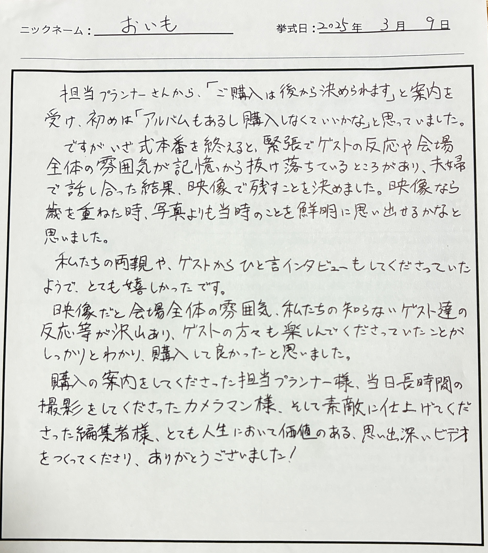 ニックネーム： おいも 挙式日：2025年 3月 9日
担当プランナーさんから、「ご購入は後から決められます」と案内を
受け、初めは「アルバムもあるし購入しなくていいかな」と思っていました。
ですがいざ式本番を終えると、緊張でゲストの反応や会場
全体の雰囲気が記憶から抜け落ちているところがあり、夫婦
で話し合った結果、映像で残すことを決めました。映像なら
歳を重ねた時、写真よりも当時のことを鮮明に思い出せるかなと
思いました。
私たちの両親や、ゲストからひと言インタビューもしてくださっていた
ようで、とても嬉しかったです。
映像だと会場全体の雰囲気、私たちの知らないゲスト達の
反応等が沢山あり、ゲストの方々も楽しんでくださっていたことが
しっかりとわかり、購入して良かったと思いました。
購入の案内をしてくださった担当プランナー様、当日長時間の
撮影をしてくださったカメラマン様、そして素敵に仕上げてくだ
さった編集者様、とても人生において価値のある、思い出深いビデオ
をつくってくださり、ありがとうございました！